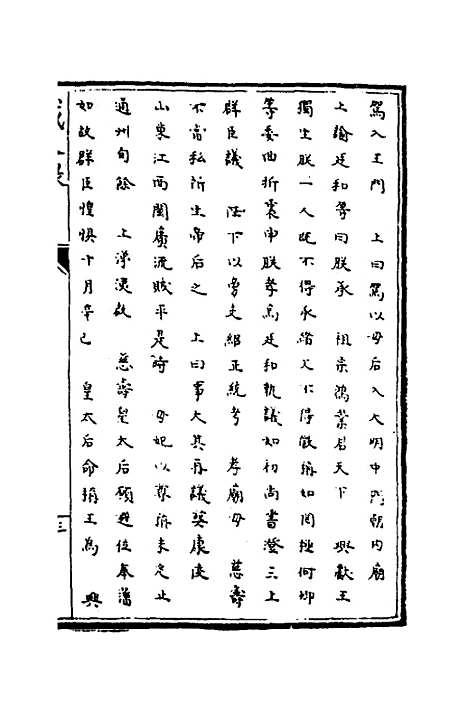 駕入王門　上曰駕以母后入大明中門朝內廟
上諭廷和等曰朕承　祖宗鴻業君天下　興獻王
獨生朕一人既不得承緒又不得徽稱如罔極何卿
等委曲折衷申朕孝焉廷和執議如初尚書澄三上
群臣議　陛下以旁支紹正統考　孝廟母　慈壽
不當私所生帝后之　上曰事大其再議癸康陵
山東江西閩廣流賊平是時　母妃以尊稱未定止
通州旬餘　上涕泣啟　慈壽皇太后願避位奉藩
如故群臣惶懼十月辛巳　皇太后命稱王為　興
三